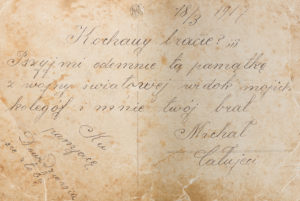 18/3 1917
Kochany bracie!
Pszyjmi odemnie tą pamiątkę
z wojny światowej widok mojich
kolegóf i mnie twój brat
Michał
Całujeci
Ku
pamięci